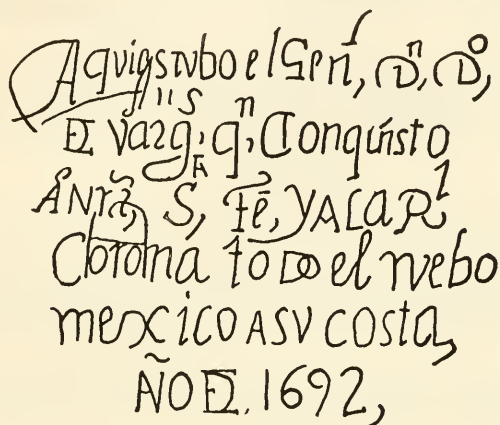 Aquiqstubo el Genl, Dn, Do,
DE Vargs, qn, Conquisto
A Nrã, S, Fẽ, Y A La Rl
Corona todo el nuebo
mexico A SU costa,
AÑO DE. 1692,